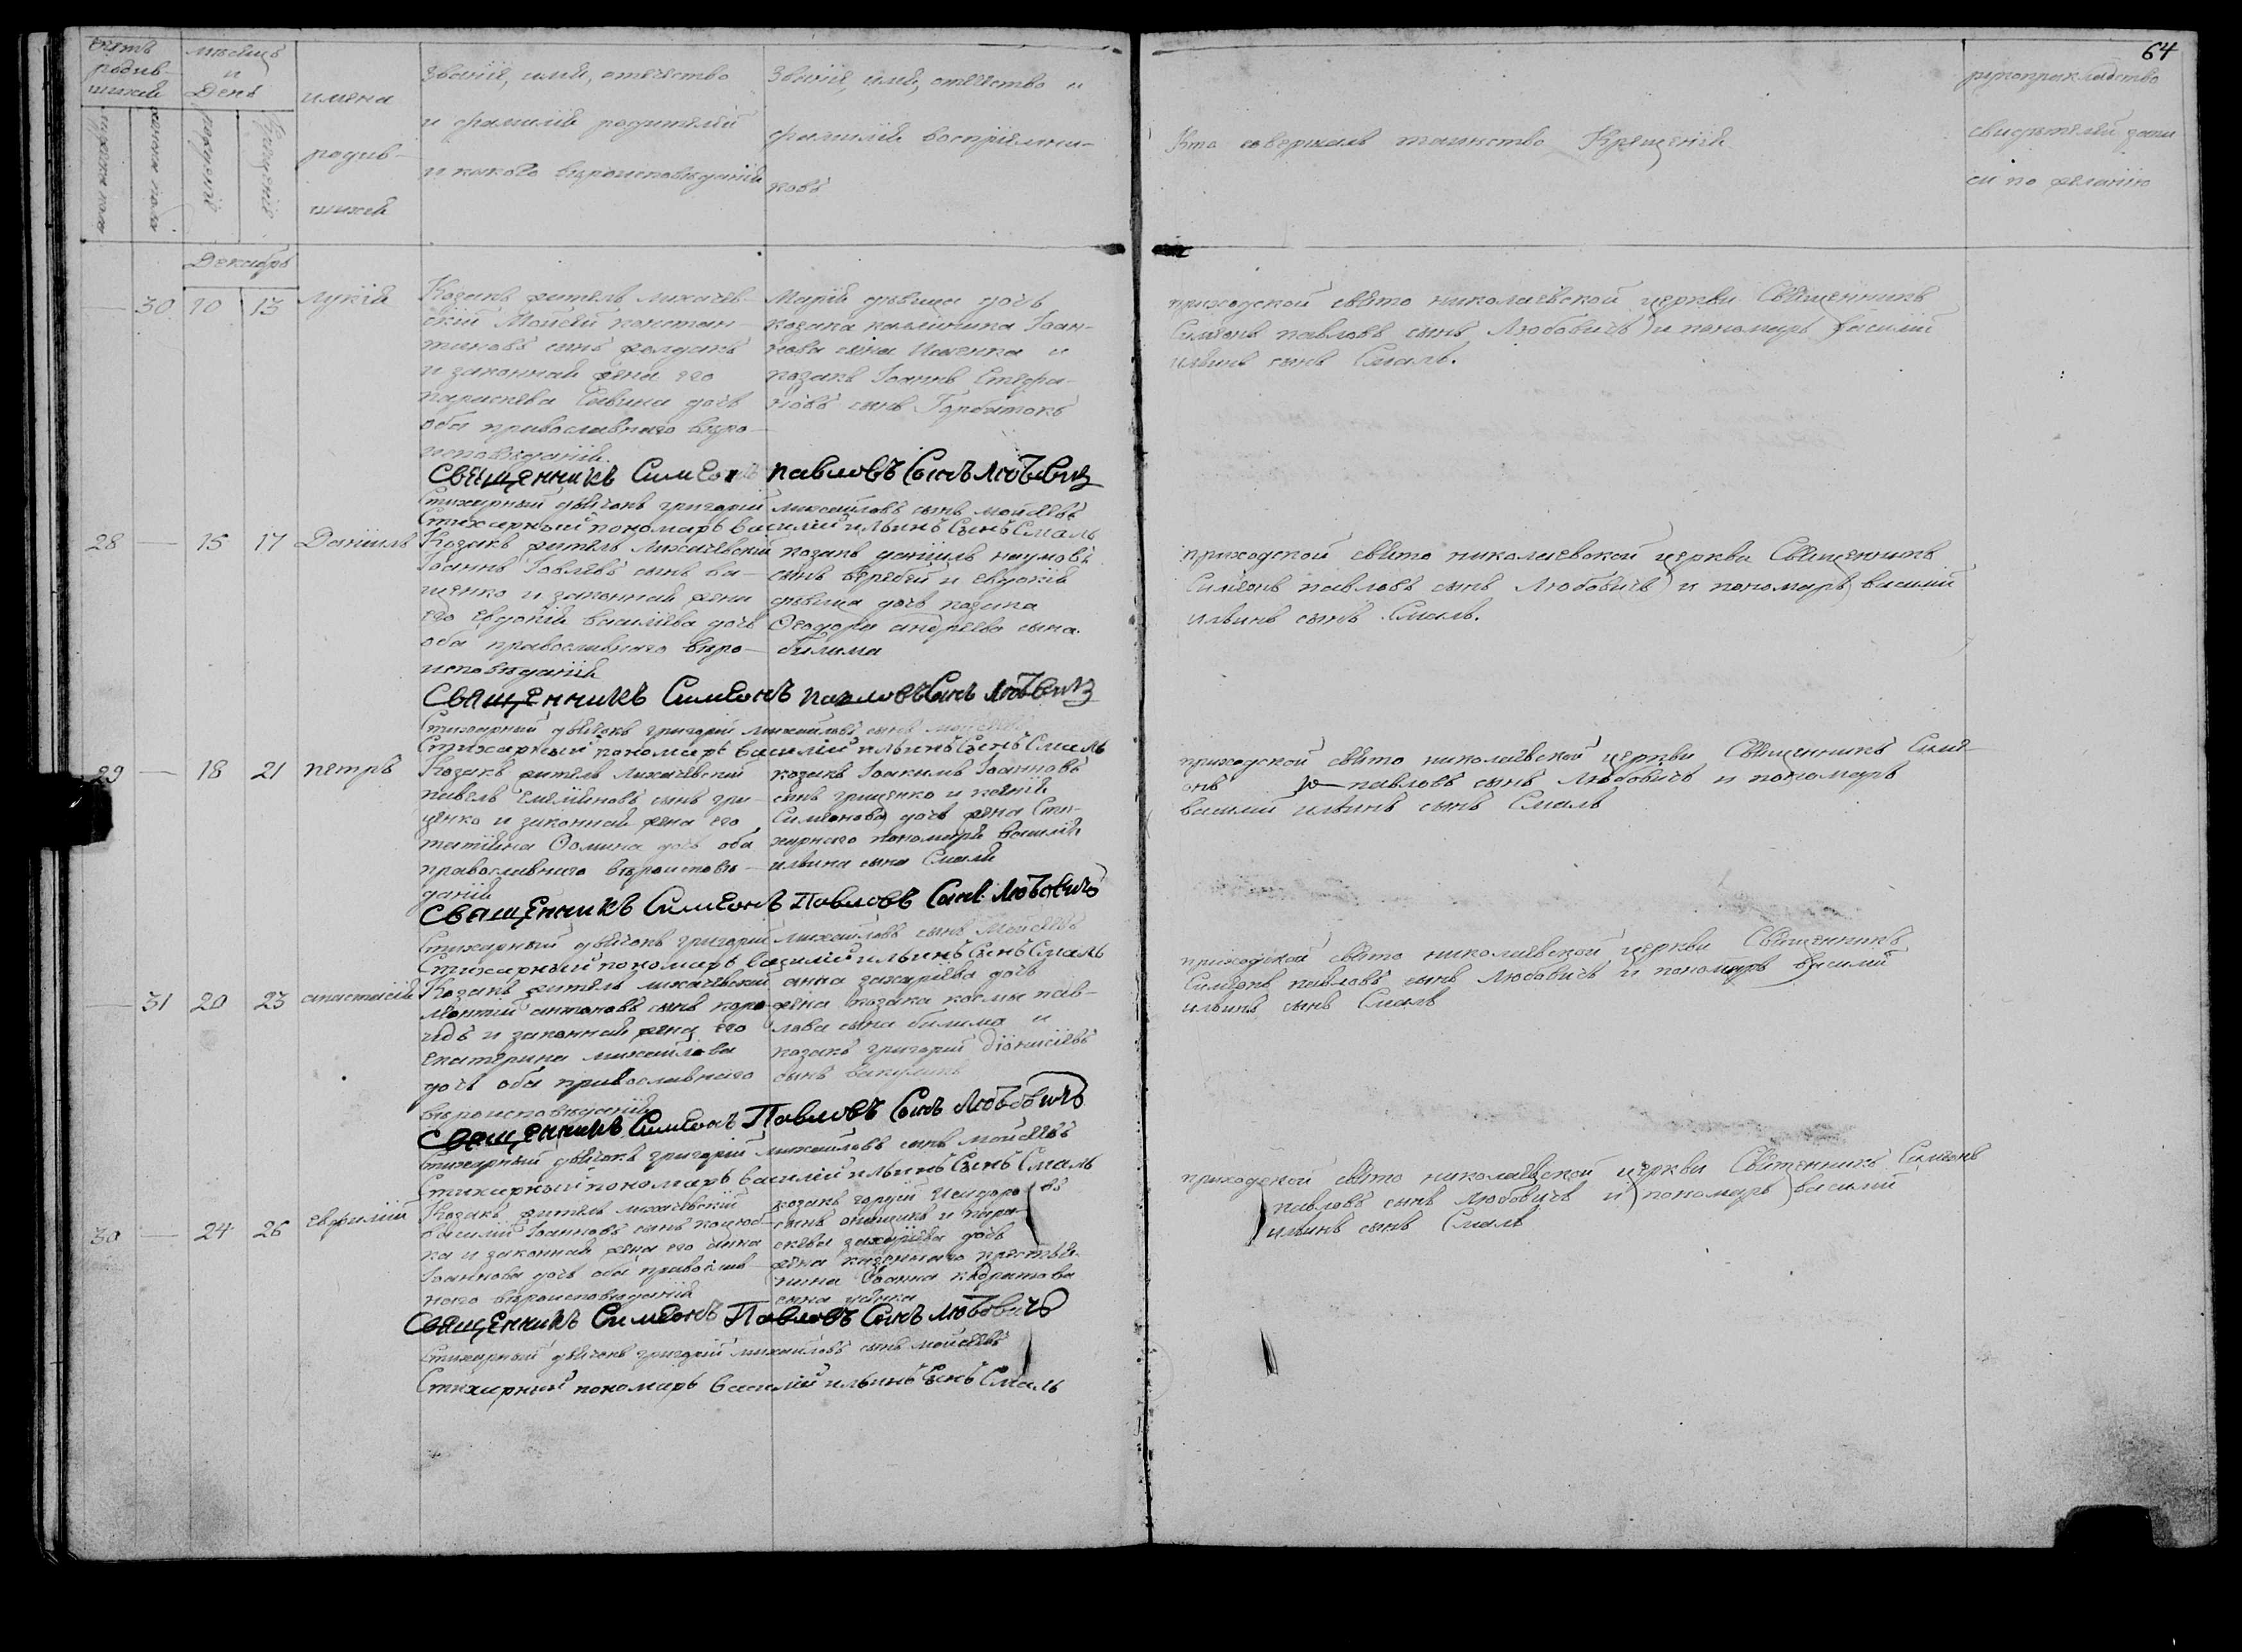 64
Счетъ родив-шихся
мѣсяцъ и День
имена родив-шихся
Званіе, имя, отечество
и фамилія родителей
и какого вѣроисповѣданія
Званіе, имя, отечество и
фамилія воспріемни-
ковъ
Кто совершалъ таинство Крещенія
рукоприкладство
свидѣтелей запи
си по желанію
мужеска пола
женска пола
рожденія
Крещенія
Декабрь
30 10 13 Лукія
Козакъ житель лихачев-
скій Моисей констан-
тиновъ сынъ
и законная жена его
параскева Савина дочь
оба православнаго вѣро-
исповѣданія
Марія дѣвица дочь
козака каллиника Іоан-
нова сына Ищенка и
козакъ Іоаннъ Стефа-
новъ сынъ Горбатокъ
приходской свято николаевской церкви Священникъ
Симеонъ павловъ сынъ Любовичъ и пономарь василій
ильинъ сынъ Смаль.
Священникъ Симеонъ павловъ Сынъ Любовичъ
Стихарный дьячокъ григорій михайловъ сынъ мойсеевъ
Стихарный пономарь василій ильинъ Сынъ Смаль
28 15 17 Даніилъ
Козакъ житель Лихачевскій
Іоаннъ Іовлевъ сынъ ва-
щенко и законная жена
его Евдокія василіева дочь
оба православнаго вѣро-
исповѣданія
козакъ даніилъ наумовъ
сынъ веребей и евдокія
дѣвица дочь козака
Ѳеодора андреева сына
билима
приходской свято николаевской церкви Священникъ
Симеонъ павловъ сынъ Любовичъ и пономарь василій
ильинъ сынъ Смаль.
Священникъ Симеонъ павловъ Сынъ Любовичъ
Стихарный дьячокъ григорій михайловъ сынъ мойсеевъ
Стихарный пономарь василій ильинъ Сынъ Смаль
29 18 21 петръ
Козакъ житель лихачевский
павелъ Емеліяновъ сынъ гри-
ценко и законная жена его
татіяна Ѳомина дочь оба
православнаго вѣроисповѣ-
данія
козакъ Іоакимъ Іоанновъ
сынъ гриценко и
Симеонова дочь жена Сти-
харнаго пономаря василія
ильина сына Смаля
приходской свято николаевской церкви Священникъ Симе-
онъ павловъ сынъ Любовичъ и пономарь
василій ильинъ сынъ Смаль
Священникъ Симеонъ Павловъ Сынъ Любовичъ
Стихарный дьячокъ григорій михайловъ сынъ Мойсеевъ
Стихарный пономарь василій ильинъ Сынъ Смаль
31 20 23 анастасія
Козакъ житель лихачевский
леонтій антоновъ сынъ
и законная жена его
екатерина михайлова
дочь оба православнаго
вѣроисповѣданія
анна захаріева дочь
жена козака космы пав-
лова сына билима и
козакъ григорій діонисіевъ
сынъ вакулинъ
приходской свято николаевской церкви Священникъ
Симеонъ павловъ сынъ Любовичъ и пономарь василій
ильинъ сынъ Смаль
Священникъ Симеонъ Павловъ Сынъ Любовичъ
Стихарный дьячокъ григорій михайловъ сынъ мойсеевъ
Стихарный пономарь василій ильинъ Сынъ Смаль
30 24 26 евфимій
Козакъ житель лихачевскій
василій Іоанновъ сынъ
и законная жена его анна
Іоаннова дочь оба православ-
наго вѣроисповѣданія
козакъ гордій Исидоровъ
сынъ и пара-
скева захаріева дочь
жена казеннаго крестья-
нина Іоанна кодратова
сына
приходской свято николаевской церкви Священникъ Симеонъ
павловъ сынъ Любовичъ и пономарь василій
ильинъ сынъ Смаль
Священникъ Симеонъ Павловъ Сынъ Любовичъ
Стихарный дьячокъ григорій михайловъ сынъ мойсеевъ
Стихарный пономарь василій ильинъ Сынъ Смаль